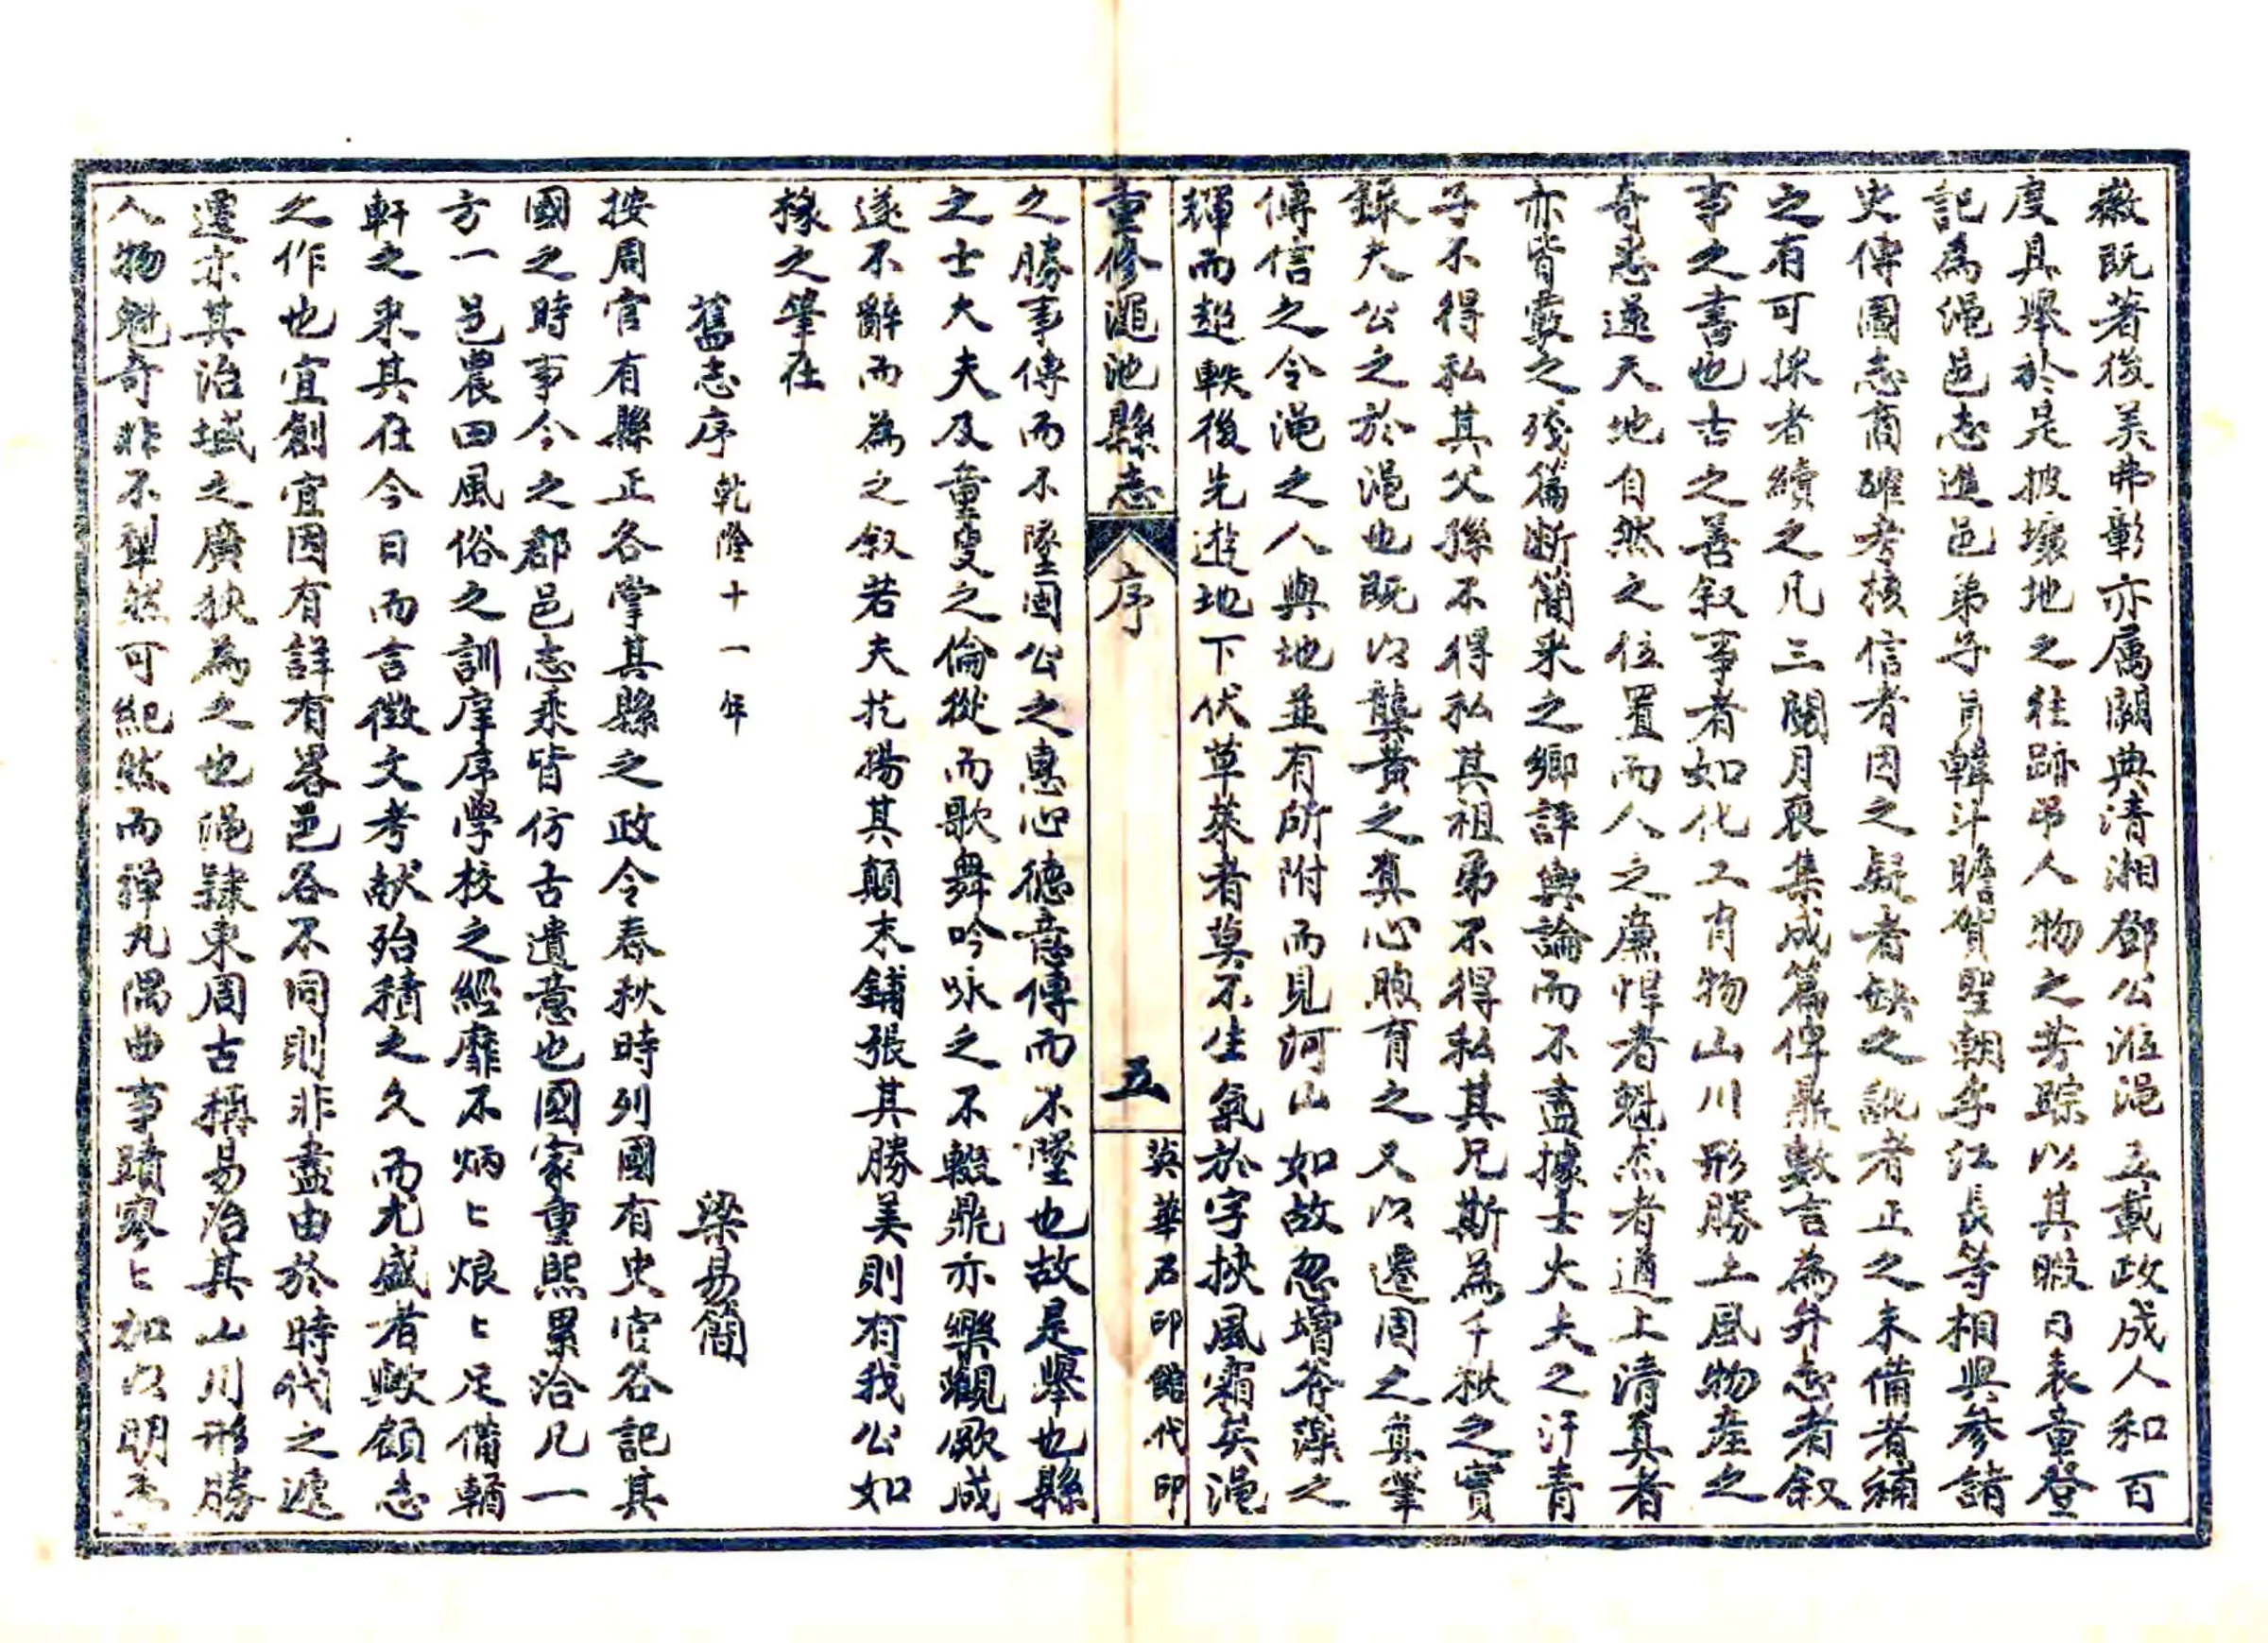 徽既著後美弗彰亦属闕典清湘鄧公涖澠五載政成人和百
度具舉於是披壤地之往跡弔人物之芳踪以其暇日表章登
記為澠邑志進邑弟子員韓斗瞻賀聖朝李江長等相與參諸
史傳圖志商確考核信者因之疑者缺之訛者正之未備者補
之有可採者續之凡三閱月裒集成篇俾鼎數言為弁志者叙
事之書也古之善叙事者如化工肖物山川形勝土風物產之
奇悉遂天地自然之位置而人之廉悍者魁杰者遒上清真者
亦皆覈之殘篇断簡采之鄉評輿論而不盡據士大夫之汗青
子不得私其父孫不得私其祖弟不得私其兄斯為千秋之實
錄夫公之於澠也既以龔黃之真心煦育之又以遷固之真筆
傳信之令澠之人與地並有所附而見河山如故忽增 藻之
輝而超軼後先遊地下伏草萊者莫不生氣於字挾風霜矣澠
重修澠池縣志
序
五
英華石印館代印
之勝事傳而不墜固公之惠心德意傳而不墜也故是舉也縣
之士大夫及童叟之倫從而歌舞吟咏之不輟鼎亦樂觀厥成
遂不辭而為之叙若夫抗揚其顛末鋪張其勝美則有我公如
椽之筆在
舊志序 乾隆十一年 梁易簡
按周官有縣正各掌其縣之政令春秋時列國有史官各記其
國之時事今之郡邑志乘皆仿古遺意也國家重熙累洽凡一
方一邑農田風俗之訓庠序學校之經靡不炳〻烺〻足備輶
軒之采其在今日而言徵文考献殆積之久而尤盛者歟顧志
之作也宜創宜因有詳有畧邑各不同則非盡由於時代之遞
遷亦其治域之廣狹為之也澠隸東周古稱易治其山川形勝
人物魁奇非不犁然可紀然而彈丸隅曲事蹟寥〻加以明季